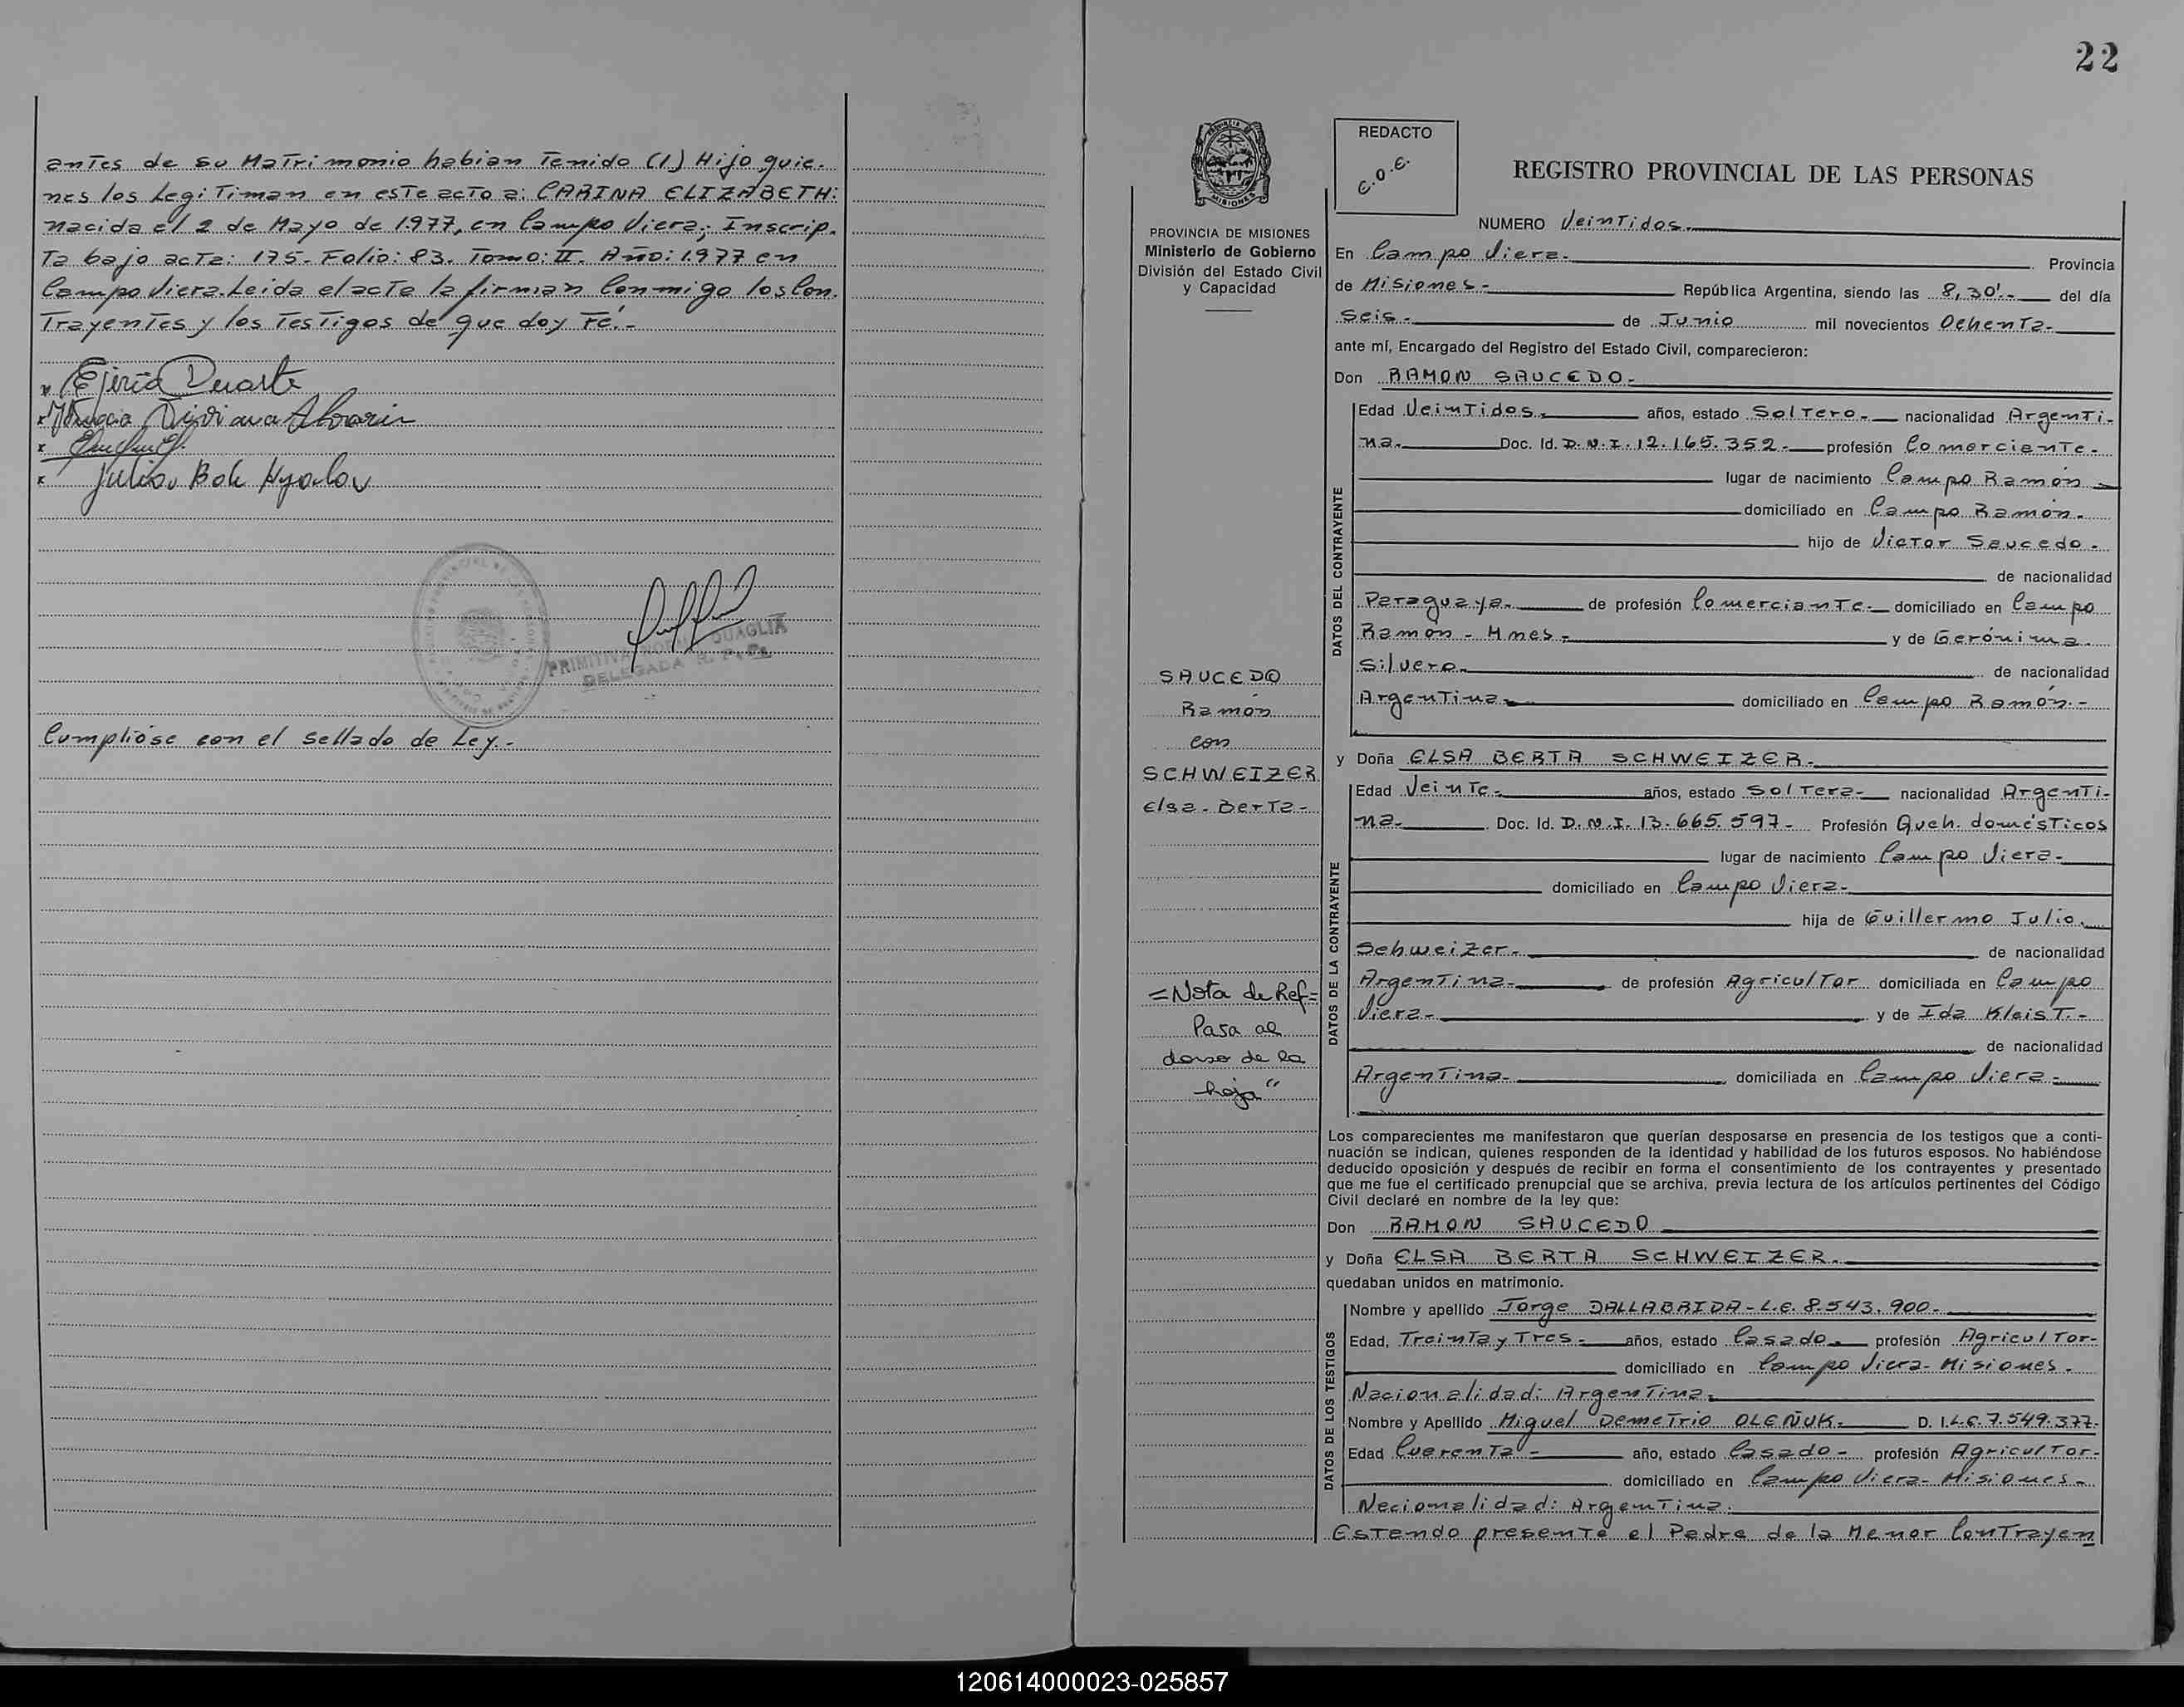 antes de su Matrimonio habian Tenido (1) Hijo quie-
nes los LegiTiman en este acto a: CARINA ELIZABETH:
nacida el 2 de Mayo de 1977, en Campo Viera; Inscrip-
Ta bajo acta: 175- Folio: 83. Tomo: II. Año: 1977 en
Campo Viera. Leida el acta la firman Conmigo los Con-
Trayentes y los Testigos de que doy Fé.-
Duarte
x Viviana
x
x Julio
PRIMITIVA QUAGLIA
DELEGADA R. P. Ps.
Cumplióse con el sellado de Ley.-
22
REDACTO
C.O.E.
REGISTRO PROVINCIAL DE LAS PERSONAS
PROVINCIA DE MISIONES
Ministerio de Gobierno
División del Estado Civil
y Capacidad
NUMERO Veintidos.
En Campo Viera.- Provincia
de Misiones - República Argentina, siendo las 8,30'.- del día
Seis.- de Junio mil novecientos Ochenta-
ante mí, Encargado del Registro del Estado Civil, comparecieron:
Don RAMON SAUCEDO.-
DATOS DEL CONTRAYENTE
Edad Veintidos.- años, estado Soltero.- nacionalidad Argenti-
na.- Doc. Id. D.N.I. 12.165.352.- profesión Comerciante.-
lugar de nacimiento Campo Ramón
domiciliado en Campo Ramón.
hijo de Victor Saucedo.
de nacionalidad
Paraguaya.- de profesión Comerciante.- domiciliado en Campo
Ramón - Mnes.- y de Gerónima
Silvero.- de nacionalidad
Argentina- domiciliado en Campo Ramón.-
SAUCEDO
Ramón
con
SCHWEIZER
Elsa-Berta-
y Doña ELSA BERTA SCHWEIZER.-
DATOS DE LA CONTRAYENTE
Edad Veinte.- años, estado Soltera- nacionalidad Argenti-
na.- Doc. Id. D.N.I. 13.665.597- Profesión Queh. domésticos
lugar de nacimiento Campo Viera-
domiciliado en Campo Viera-
hija de Guillermo Julio
Schweizer.- de nacionalidad
Argentina.- de profesión Agricultor domiciliada en Campo
Viera- y de Ida Kleist.-
de nacionalidad
Argentina- domiciliada en Campo Viera-
=Nota de Ref=
Pasa al
dorso de la
hoja"
Los comparecientes me manifestaron que querían desposarse en presencia de los testigos que a conti-
nuación se indican, quienes responden de la identidad y habilidad de los futuros esposos. No habiéndose
deducido oposición y después de recibir en forma el consentimiento de los contrayentes y presentado
que me fue el certificado prenupcial que se archiva, previa lectura de los artículos pertinentes del Código
Civil declaré en nombre de la ley que:
Don RAMON SAUCEDO
y Doña ELSA BERTA SCHWEIZER.
quedaban unidos en matrimonio.
DATOS DE LOS TESTIGOS
Nombre y apellido Jorge DALLABRIDA - L.E. 8.543.900-
Edad, Treinta y Tres.- años, estado Casado.- profesión Agricultor-
domiciliado en Campo Viera- Misiones.
Nacionalidad: Argentina.
Nombre y Apellido Miguel Demetrio OLEÑUK.- D. I. L.E. 7.549.377-
Edad Cuarenta - año, estado Casado - profesión Agricultor-
domiciliado en Campo Viera- Misiones-
Nacionalidad: Argentina.
Estando presente el Padre de la Menor Contrayen
120614000023-025857